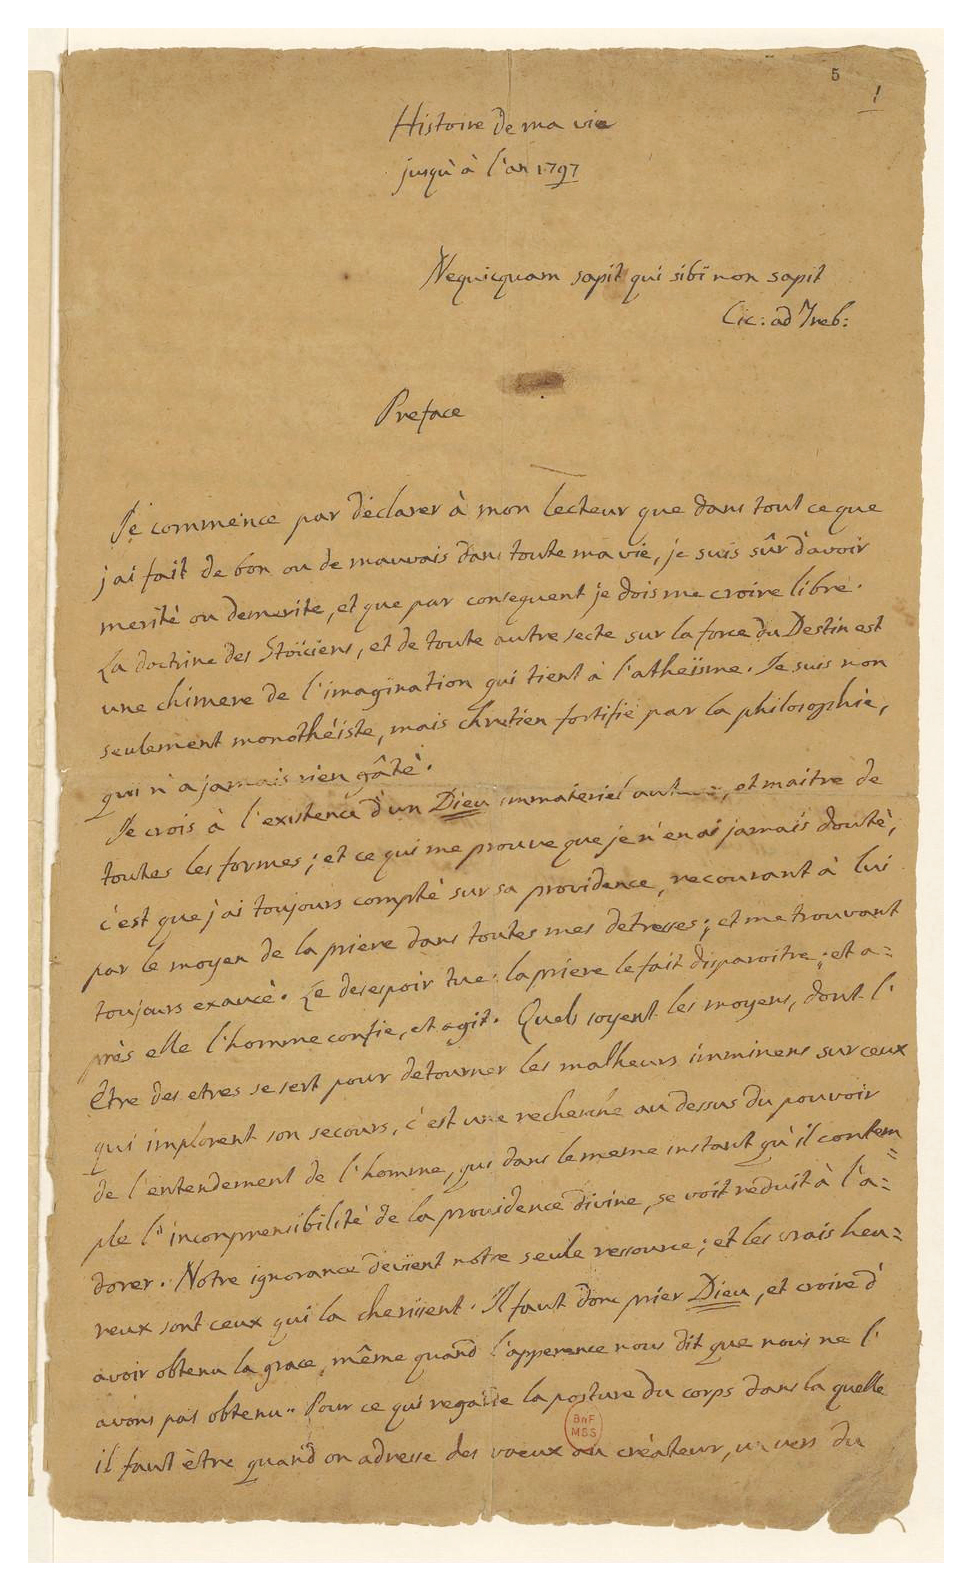 5
1
Histoire de ma vie
jusqu'à l'an 1797
Nequicquam sapit qui sibi non sapit
Cic: ad Treb:
Preface
Je commence par déclarer à mon lecteur que dans tout ce que
j'ai fait de bon ou de mauvais dans toute ma vie, je suis sûr d'avoir
merité ou demerité, et que par consequent je dois me croire libre.
La doctrine des Stoïciens, et de toute autre secte sur la force du Destin est
une chimere de l'imagination qui tient à l'atheïsme. Je suis non
seulement monothéiste, mais chretien fortifié par la philosophie,
qui n'a jamais rien gâté.
Je crois à l'existence d'un Dieu immateriel auteur, et maitre de
toutes les formes; et ce qui me prouve que je n'en ai jamais douté,
c'est que j'ai toujours compté sur sa providence, recourant à lui
par le moyen de la priere dans toutes mes detresses; et me trouvant
toujours exaucé. Le desespoir tue: la priere le fait disparoitre; et a=
près elle l'homme confie, et agit. Quels soyent les moyens, dont l'
Être des etres se sert pour detourner les malheurs imminens sur ceux
qui implorent son secours, c'est une recherche au dessus du pouvoir
de l'entendement de l'homme, qui dans le meme instant qu'il contem
=
ple l'incomprensibilité de la providence divine, se voit réduit à l'a=
dorer. Notre ignorance devient notre seule ressource; et les vrais heu=
reux sont ceux qui la cherissent. Il faut donc prier Dieu, et croire d'
avoir obtenu la grace, même quand l'apperence nous dit que nous ne l'
avons pas obtenu. Pour ce qui regarde la posture du corps dans la quelle
il faut être quand on adresse des voeux au créateur, un vers du
BnF
MSS